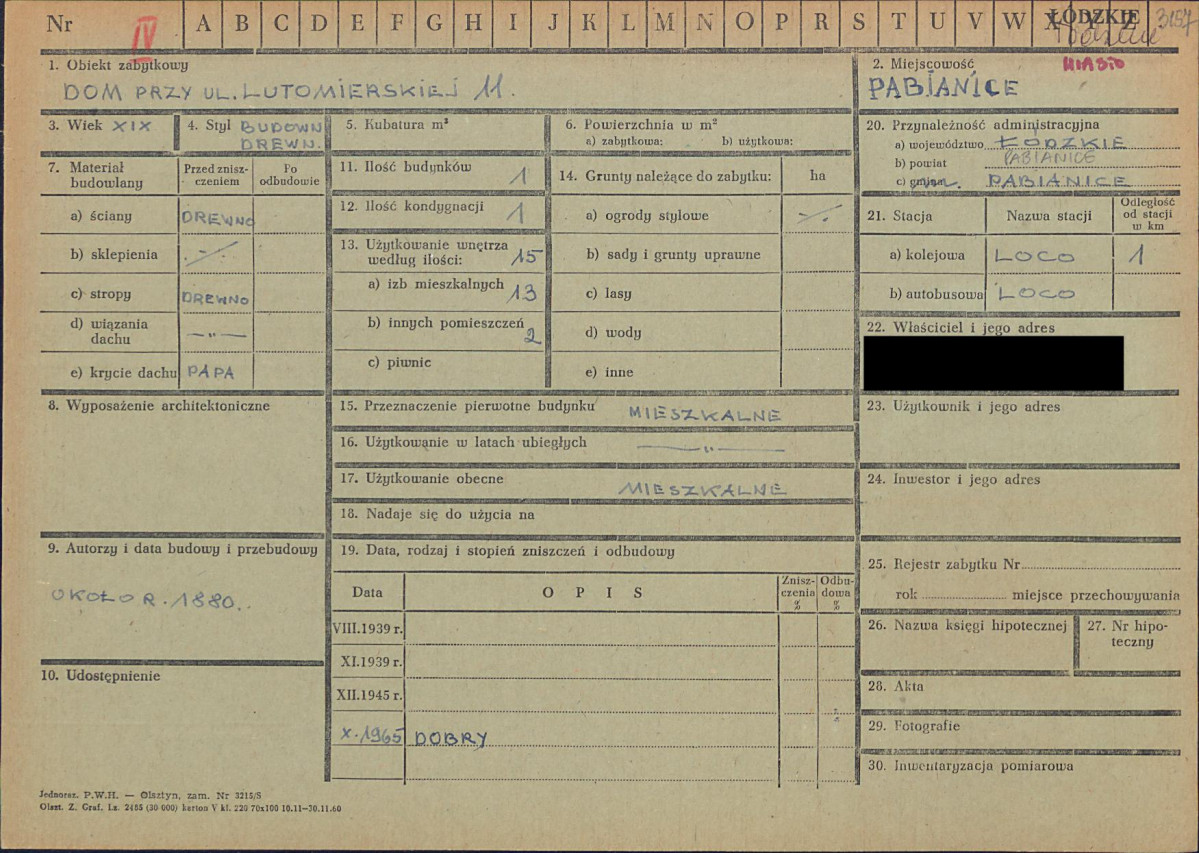 Nr IV A B C D E F G H I J K L M N O P R S T U V W X Y Z ŁÓDZKIE 3157
1. Obiekt zabytkowy
DOM PRZY UL. LUTOMIERSKIEJ 11.
2. Miejscowość MIASTO
PABIANICE
3. Wiek XIX
4. Styl BUDOWN.
DREWN.
5. Kubatura m³
6. Powierzchnia w m²
a) zabytkowa: b) użytkowa:
7. Materiał budowlany
Przed zniszczeniem
Po odbudowie
a) ściany DREWNO
b) sklepienia -/-
c) stropy DREWNO
d) wiązania dachu —„—
e) krycie dachu PAPA
8. Wyposażenie architektoniczne
9. Autorzy i data budowy i przebudowy
OKOŁO R. 1880.
10. Udostępnienie
11. Ilość budynków 1
12. Ilość kondygnacji 1
13. Użytkowanie wnętrza
według ilości: 15
a) izb mieszkalnych 13
b) innych pomieszczeń 2
c) piwnic
14. Grunty należące do zabytku: ha
a) ogrody stylowe -/-
b) sady i grunty uprawne
c) lasy
d) wody
e) inne
15. Przeznaczenie pierwotne budynku MIESZKALNE
16. Użytkowanie w latach ubiegłych —„—
17. Użytkowanie obecne MIESZKALNE
18. Nadaje się do użycia na
19. Data, rodzaj i stopień zniszczeń i odbudowy
Data OPIS Zniszczenia % Odbudowa %
VIII.1939 r.
XI.1939 r.
XII.1945 r.
X.1965 DOBRY
20. Przynależność administracyjna
a) województwo ŁÓDZKIE
b) powiat PABIANICE
c) gmina PABIANICE
21. Stacja Nazwa stacji Odległość od stacji w km
a) kolejowa LOCO 1
b) autobusowa LOCO
22. Właściciel i jego adres
23. Użytkownik i jego adres
24. Inwestor i jego adres
25. Rejestr zabytku Nr
rok miejsce przechowywania
26. Nazwa księgi hipotecznej
27. Nr hipoteczny
28. Akta
29. Fotografie
30. Inwentaryzacja pomiarowa
Jednoraz. P.W.H. — Olsztyn, zam. Nr 3215/S
Olszt. Z. Graf. Lz. 2465 (30 000) karton V kl. 220 70x100 10.11—30.11.60